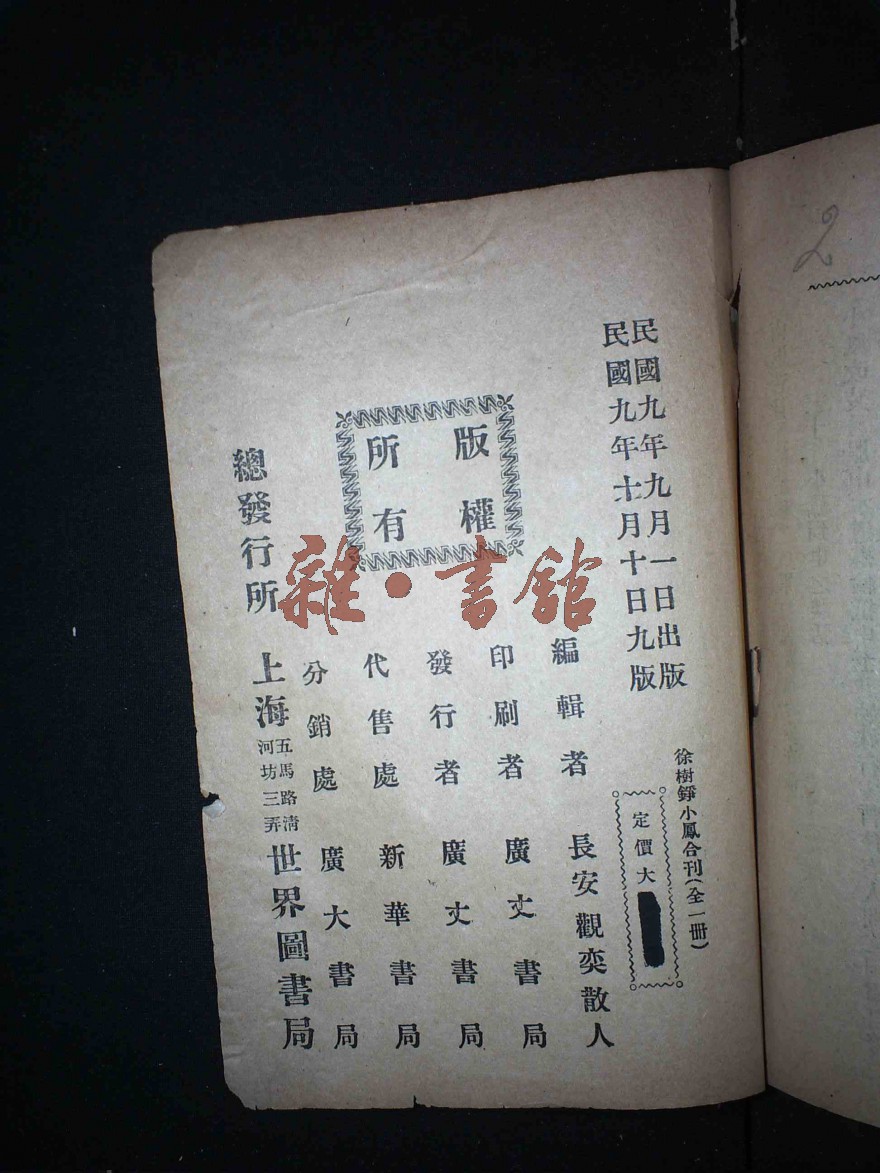 民國九年九月一日出版
民國九年十月十日九版
徐樹錚小鳳合刊（全一冊）
定價大
版權
所有
編輯者 長安觀奕散人
印刷者 廣文書局
發行者 廣文書局
代售處 新華書局
分銷處 廣大書局
總發行所 上海五馬路清河坊三弄世界圖書局
雜·書館
2